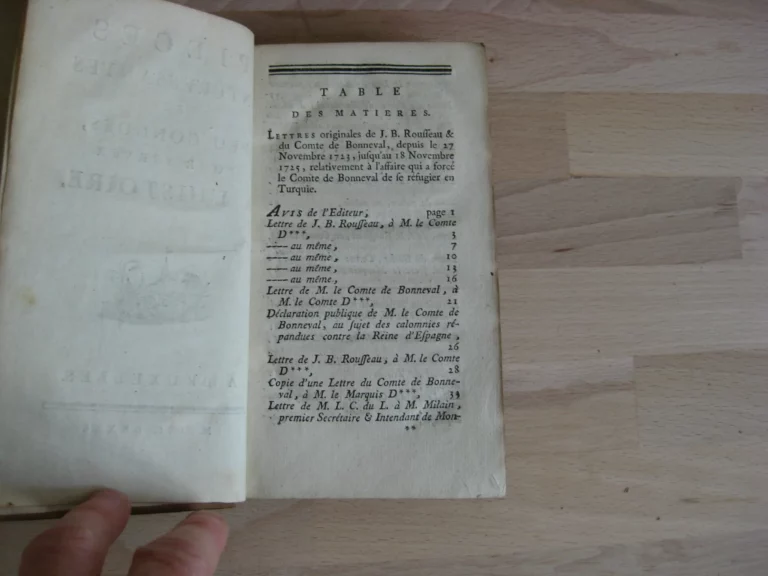 TABLE
DES MATIERES.
LETTRES originales de J. B. Rouſſeau &
du Comte de Bonneval, depuis le 27
Novembre 1723, juſqu'au 18 Novembre
1725, relativement à l'affaire qui a forcé
le Comte de Bonneval de ſe réfugier en
Turquie.
AVIS de l'Editeur, page 1
Lettre de J. B. Rouſſeau, à M. le Comte
D***, 3
—— au même, 7
—— au même, 10
—— au même, 13
—— au même, 16
Lettre de M. le Comte de Bonneval, à
M. le Comte D***, 21
Déclaration publique de M. le Comte de
Bonneval, au ſujet des calomnies ré-
pandues contre la Reine d'Eſpagne,
26
Lettre de J. B. Rouſſeau, à M. le Comte
D***, 28
Copie d'une Lettre du Comte de Bonne-
val, à M. le Marquis D***, 33
Lettre de M. L. C. du L. à M. Milain,
premier Secrétaire & Intendant de Mon-
**